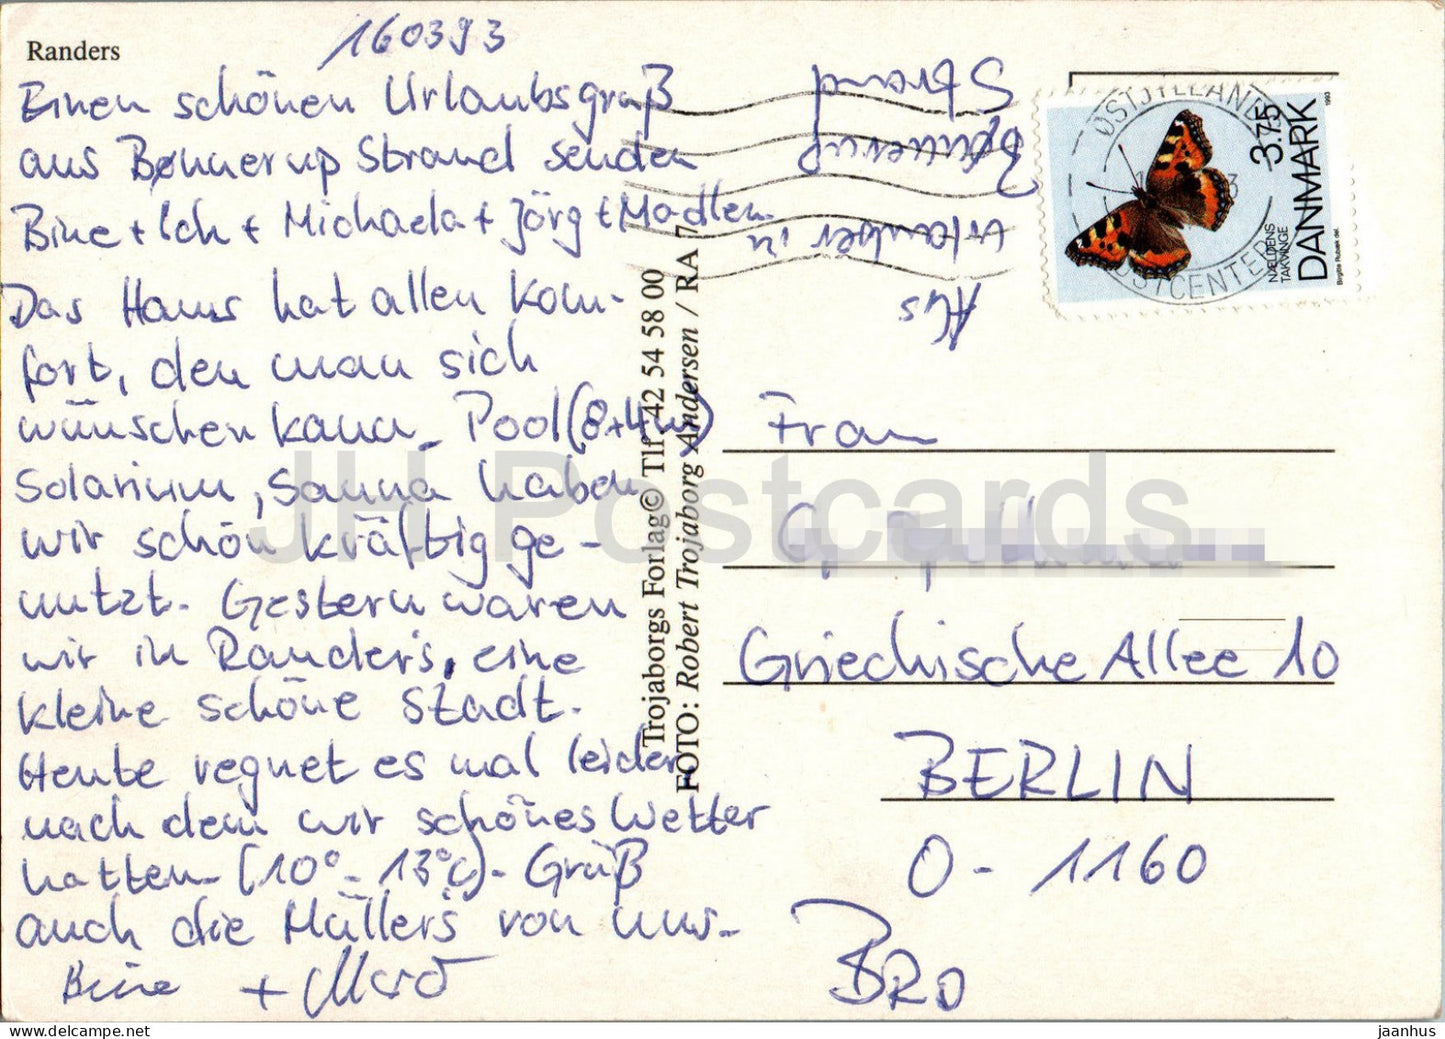 Randers
160393
Einen schönen Urlaubsgruß
aus Bønnerup Strand senden
Bine + Ich + Michaela + Jörg + Madlen.
Das Haus hat allen Kom-
fort, den man sich
wünschen kann. Pool (8+4m)
Solarium, Sauna haben
wir schön kräftig ge-
nutzt. Gestern waren
wir in Randers, eine
kleine schöne Stadt.
Heute regnet es mal leider
nach dem wir schönes Wetter
hatten (10° - 13°C). Grüß
auch die Müller's von uns.
Bine +
Trojaborgs Forlag © Tlf. 42 54 58 00
FOTO: Robert Trojaborg Andersen / RA 7
Aus
urlauber in
Bönnerup
Strand
ØSTJYLLANDS
POSTCENTER
3.75
DANMARK
1993
NÆLDENS
TAKVINGE
Birgitte Rubæk del.
Frau
G.
Griechische Allee 10
BERLIN
O - 1160
BRD
JH Postcards
jaanhus